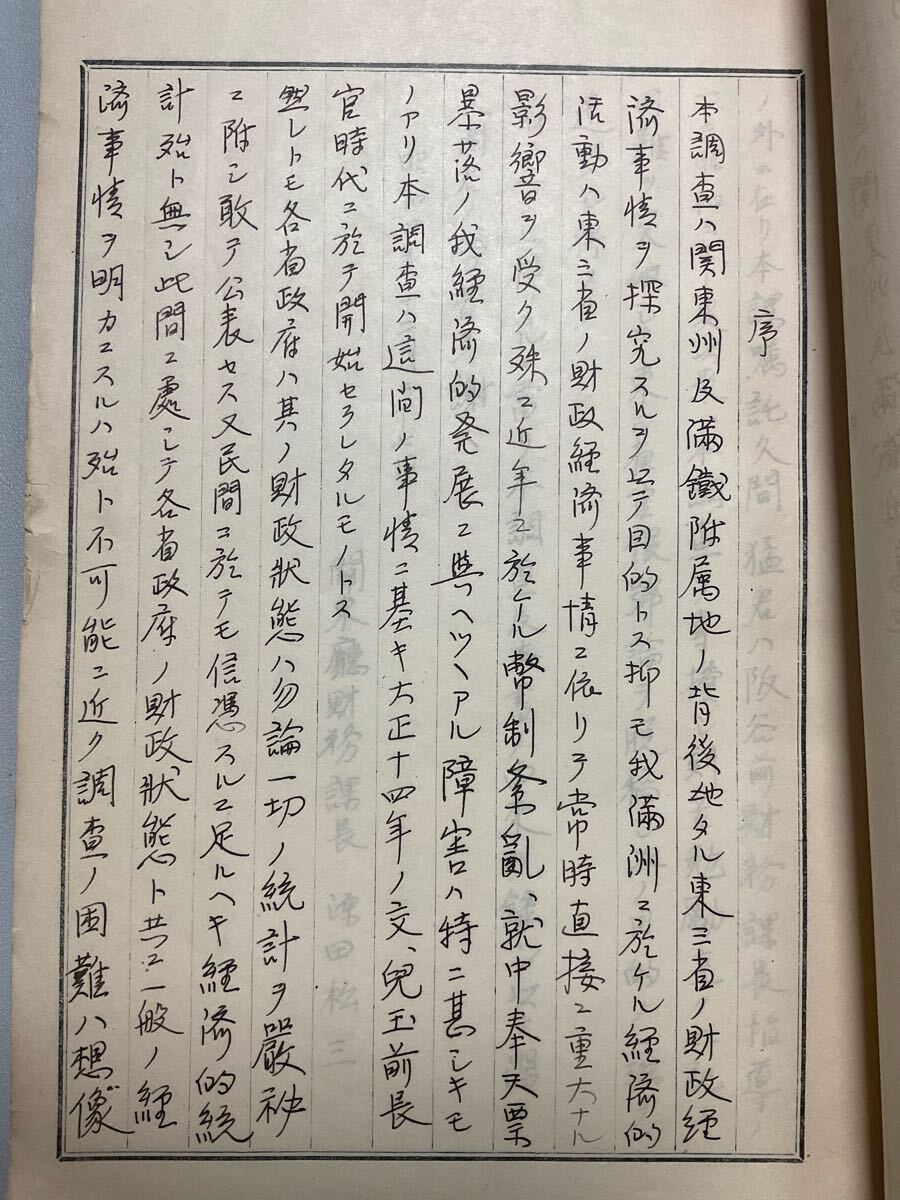 序
本調査ハ関東州及満鐵附属地ノ背後地タル東三省ノ財政経
済事情ヲ探究スルヲ以テ目的トス抑モ我満洲ニ於ケル経済的
活動ハ東三省ノ財政経済事情ニ依リテ常時直接ニ重大ナル
影響ヲ受ク殊ニ近年ニ於ケル幣制紊乱、就中奉天票
暴落ノ我経済的発展ニ與ヘツヽアル障害ハ特ニ甚シキモ
ノアリ本調査ハ這間ノ事情ニ基キ大正十四年ノ交、兒玉前長
官時代ニ於テ開始セラレタルモノトス
然レトモ各省政府ハ其ノ財政狀態ハ勿論一切ノ統計ヲ嚴秘
ニ附シ敢テ公表セス又民間ニ於テモ信憑スルニ足ルヘキ経済的統
計殆ト無シ此間ニ處シテ各省政府ノ財政狀態ト共ニ一般ノ経
済事情ヲ明カニスルハ殆ト不可能ニ近ク調査ノ困難ハ想像